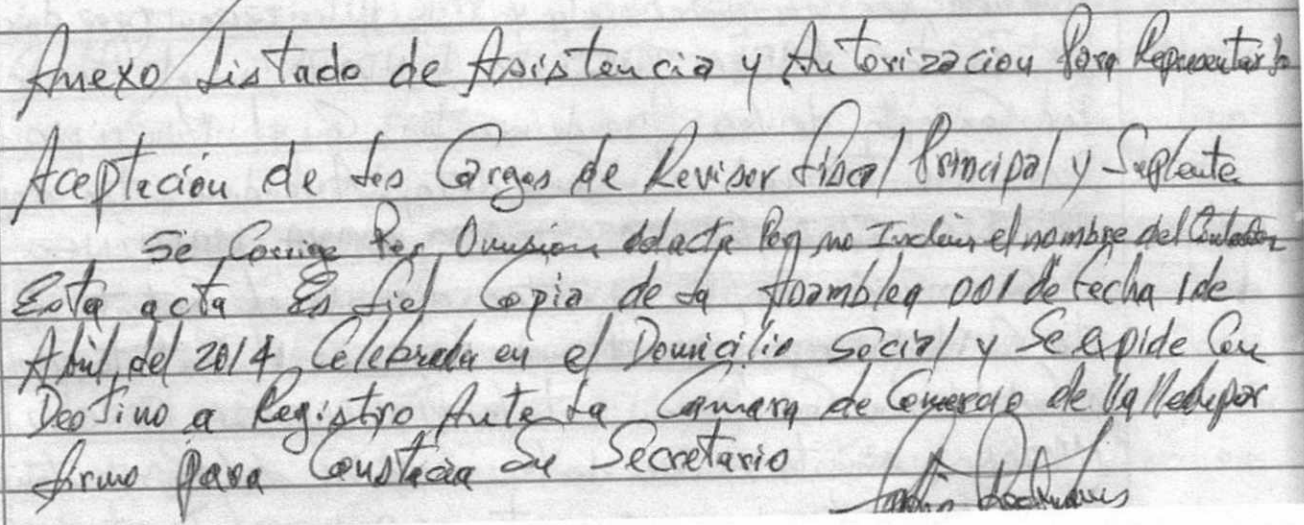 Anexo Listado de Asistencia y Autorizacion Para Representar
Aceptacion de Los Cargos de Revisor Fiscal Principal y Suplente
Se Corrige Por Omision del acta Por no Incluir el nombre del Contador
Esta acta Es fiel Copia de La Asamblea 001 de fecha 1 de
Abril del 2014 Celebrada en el Domicilio Social y Se expide Con
Destino a Registro Ante La Camara de Comercio de Valledupar
firmo para Constacia Su Secretario